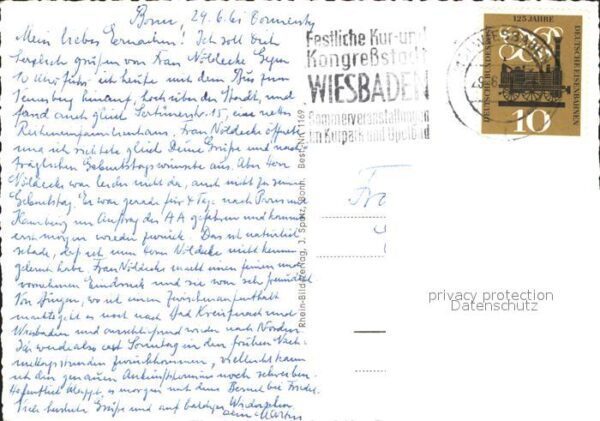 Bonn, 29.6.61 Donnerstag
Mein lieber ! Ich soll Dich
herzlich grüßen von Frau Nöldecke Gegen
10 Uhr fuhr ich heute mit dem Bus zum
Venusberg hinauf, hoch über der Stadt, und
fand auch gleich 15, ein nettes
Reiheneinfamilienhaus. Frau Nöldecke öffnete
und ich richtete gleich Deine Grüße und nach-
träglichen Geburtstagswünsche aus. Aber Herr
Nöldecke war leider nicht da, auch nicht zu seinem
Geburtstag. Er war gerade für 4 Tage nach
Hamburg im Auftrag des AA gefahren und kommt
erst morgen wieder zurück. Das ist natürlich
schade, daß ich nun Herrn Nöldecke nicht kennen-
gelernt habe. Frau Nöldecke macht einen feinen und
vornehmen Eindruck und sie war sehr freundlich.
Von Bingen, wo ich einen Zwischenaufenthalt
machte geht es noch nach Bad Kreuznach und
Wiesbaden und anschließend wieder nach Norden
Ich werde also erst Sonntag in den frühen Nach-
mittagsstunden zurückkommen, vielleicht kann
ich den genauen Ankunftstermin noch schreiben.
Hoffentlich klappt es morgen mit dem
Viele herzliche Grüße und auf baldiges Wiedersehen
Dein Martin
Festliche Kur- und
Kongreßstadt
WIESBADEN
Sommerveranstaltungen
im Kurpark und Opelbad
WIESBADEN
125 JAHRE
DEUTSCHE EISENBAHNEN
DEUTSCHE BUNDESPOST
10
Rhein-Bild-Verlag, J. Spatz, Bonn. Best. Nr. 1169
Fr
privacy protection
Datenschutz